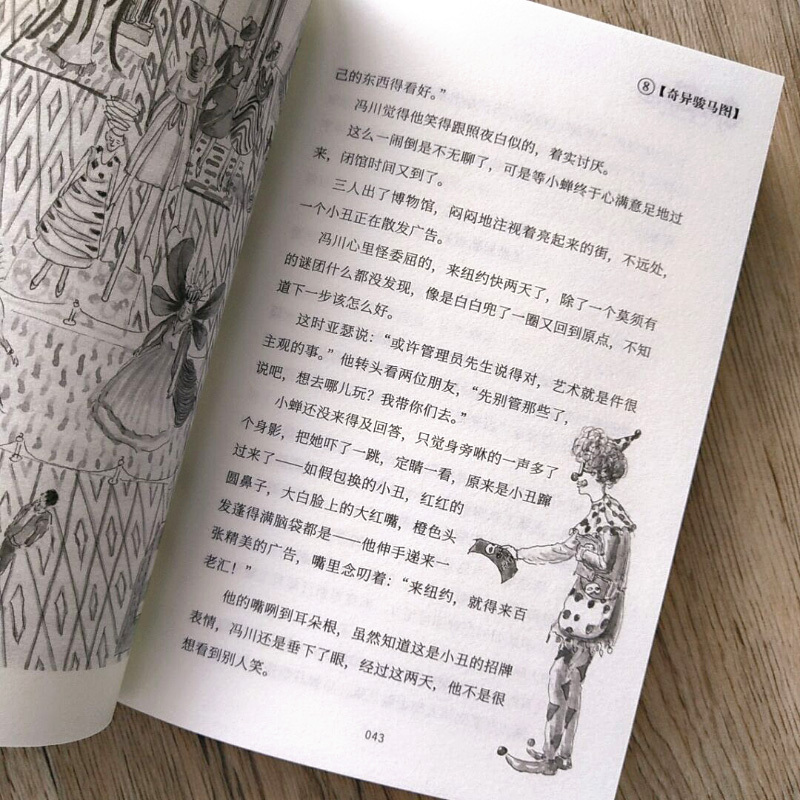 ⑧【奇异骏马图】
己的东西得看好。”
冯川觉得他笑得跟照夜白似的，着实讨厌。
这么一闹倒是不无聊了，可是等小蝉终于心满意足地过
来，闭馆时间又到了。
三人出了博物馆，闷闷地注视着亮起来的街，不远处，
一个小丑正在散发广告。
冯川心里怪委屈的，来纽约快两天了，除了一个莫须有
的谜团什么都没发现，像是白白兜了一圈又回到原点，不知
道下一步该怎么好。
这时亚瑟说：“或许管理员先生说得对，艺术就是件很
主观的事。”他转头看两位朋友，“先别管那些了，
说吧，想去哪儿玩？我带你们去。”
小蝉还没来得及回答，只觉身旁咻的一声多了
个身影，把她吓了一跳，定睛一看，原来是小丑蹿
过来了——如假包换的小丑，红红的
圆鼻子，大白脸上的大红嘴，橙色头
发蓬得满脑袋都是——他伸手递来一
张精美的广告，嘴里念叨着：“来纽约，就得来百
老汇！”
他的嘴咧到耳朵根，虽然知道这是小丑的招牌
表情，冯川还是垂下了眼，经过这两天，他不是很
想看到别人笑。
043